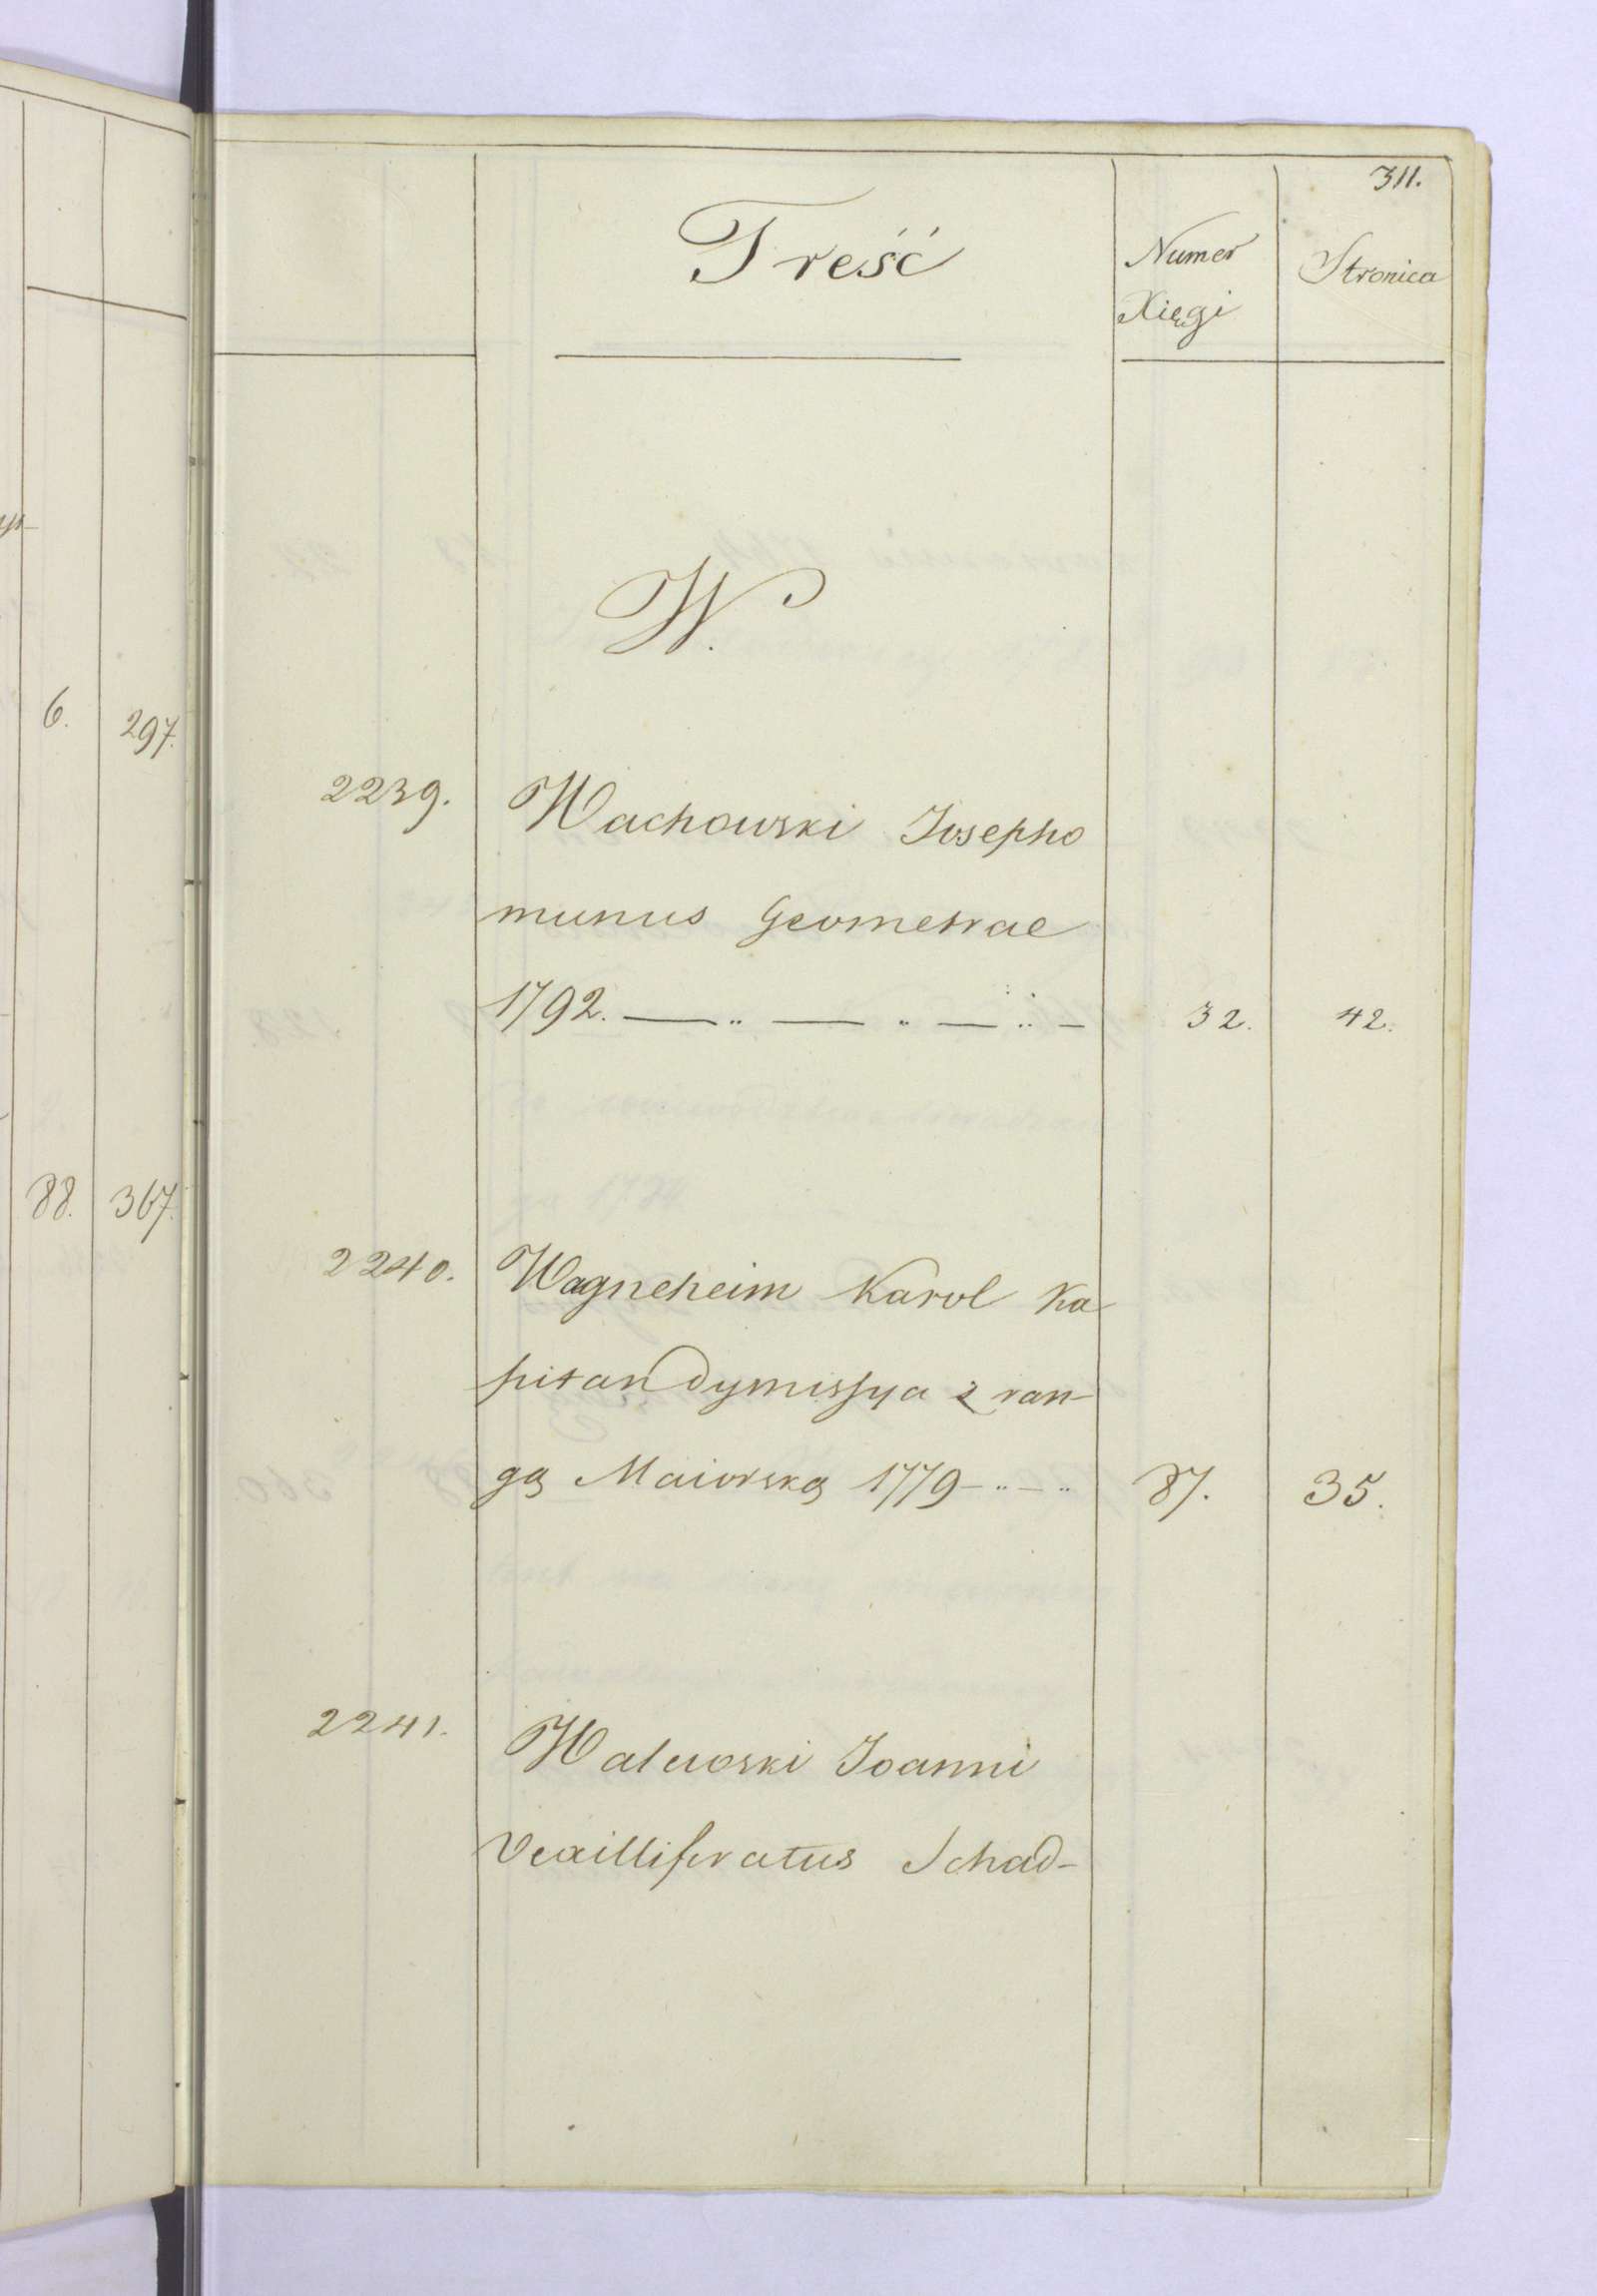 311.
Treść
Numer
Xięgi
Stronica
W.
6.
297.
2239.
Wachowski Josepho
munus Geometrae
1792. 32. 42.
88. 367.
2240.
Wagneheim Karol Ka
pitan dymissya z ran-
gą Maiorską 1779 87. 35.
2241.
Walewski Joanni
Vexilliferatus Schad-